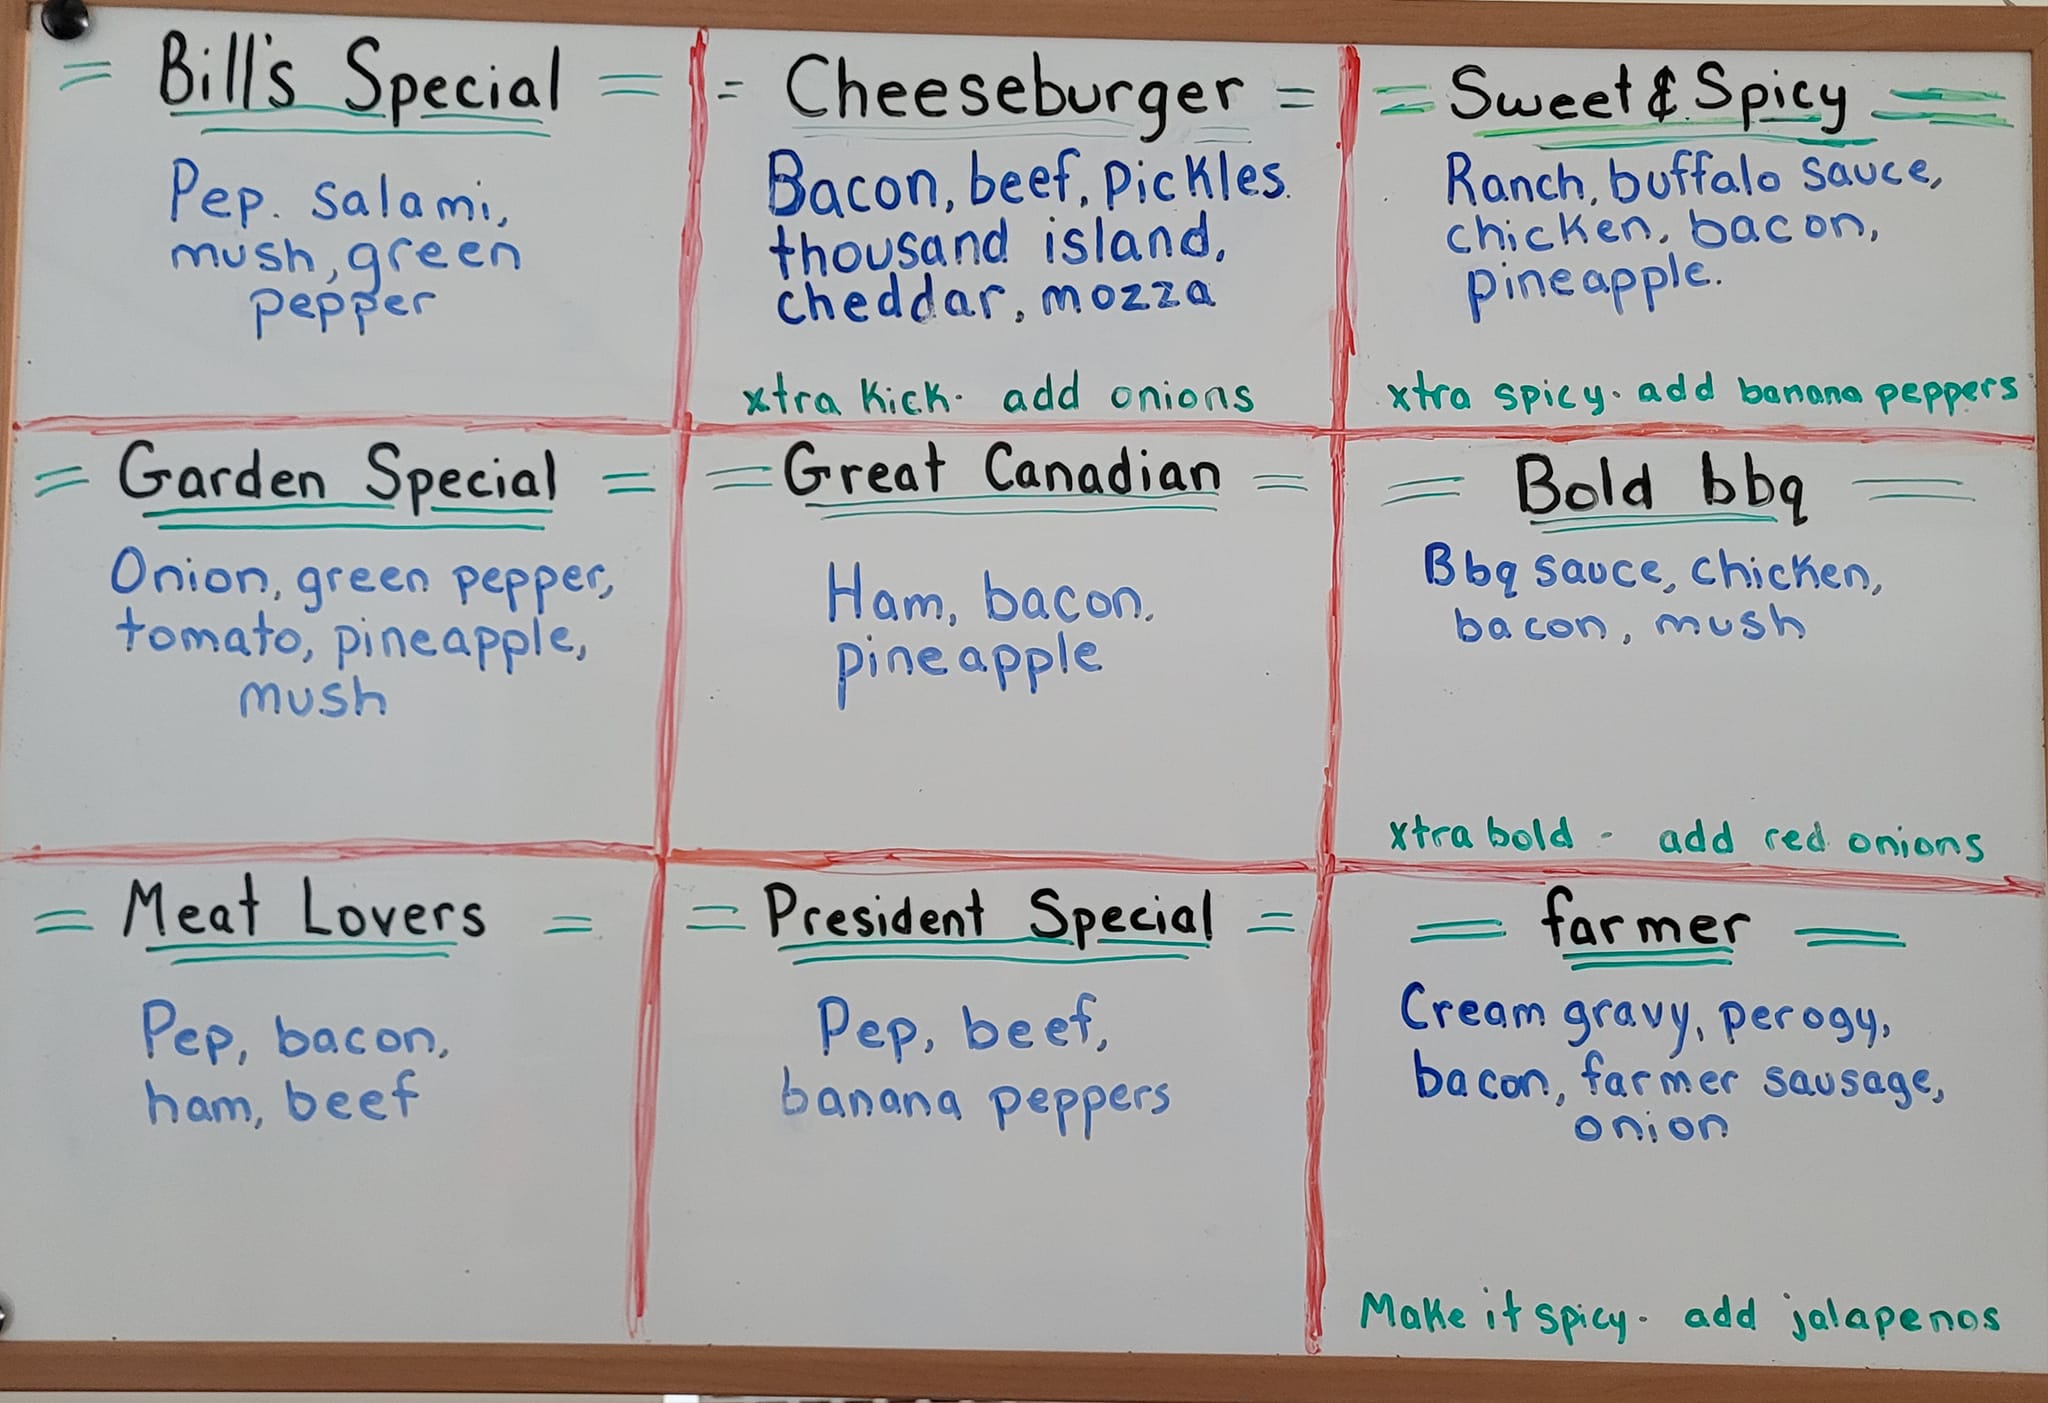 = Bill's Special =
Pep. salami,
mush, green
pepper
= Cheeseburger =
Bacon, beef, pickles.
thousand island,
cheddar, mozza
xtra kick- add onions
= Sweet & Spicy =
Ranch, buffalo sauce,
chicken, bacon,
pineapple.
xtra spicy- add banana peppers
= Garden Special =
Onion, green pepper,
tomato, pineapple,
mush
= Great Canadian =
Ham, bacon,
pineapple
= Bold bbq =
Bbq sauce, chicken,
bacon, mush
xtra bold - add red onions
= Meat Lovers =
Pep, bacon,
ham, beef
= President Special =
Pep, beef,
banana peppers
= farmer =
Cream gravy, perogy,
bacon, farmer sausage,
onion
Make it spicy- add jalapenos